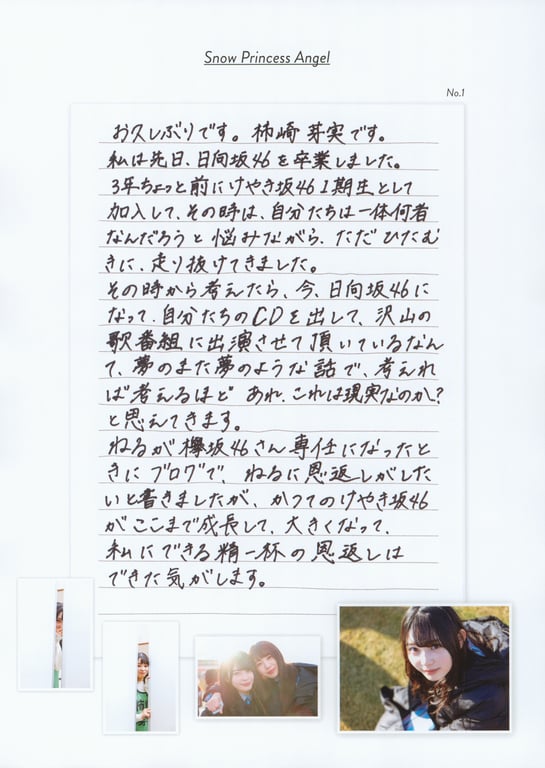 Snow Princess Angel
No.1
お久しぶりです。柿崎芽実です。
私は先日、日向坂46を卒業しました。
3年ちょっと前にけやき坂46 1期生として
加入して、その時は、自分たちは一体何者
なんだろうと悩みながら、ただひたむ
きに、走り抜けてきました。
その時から考えたら、今、日向坂46に
なって、自分たちのCDを出して、沢山の
歌番組に出演させて頂いているなん
て、夢のまた夢のような話で、考えれ
ば考えるほど あれ、これは現実なのか?
と思えてきます。
ねるが欅坂46さん専任になったと
きにブログで、ねるに恩返しがした
いと書きましたが、かつてのけやき坂46
がここまで成長して、大きくなって、
私にできる精一杯の恩返しは
できた気がします。